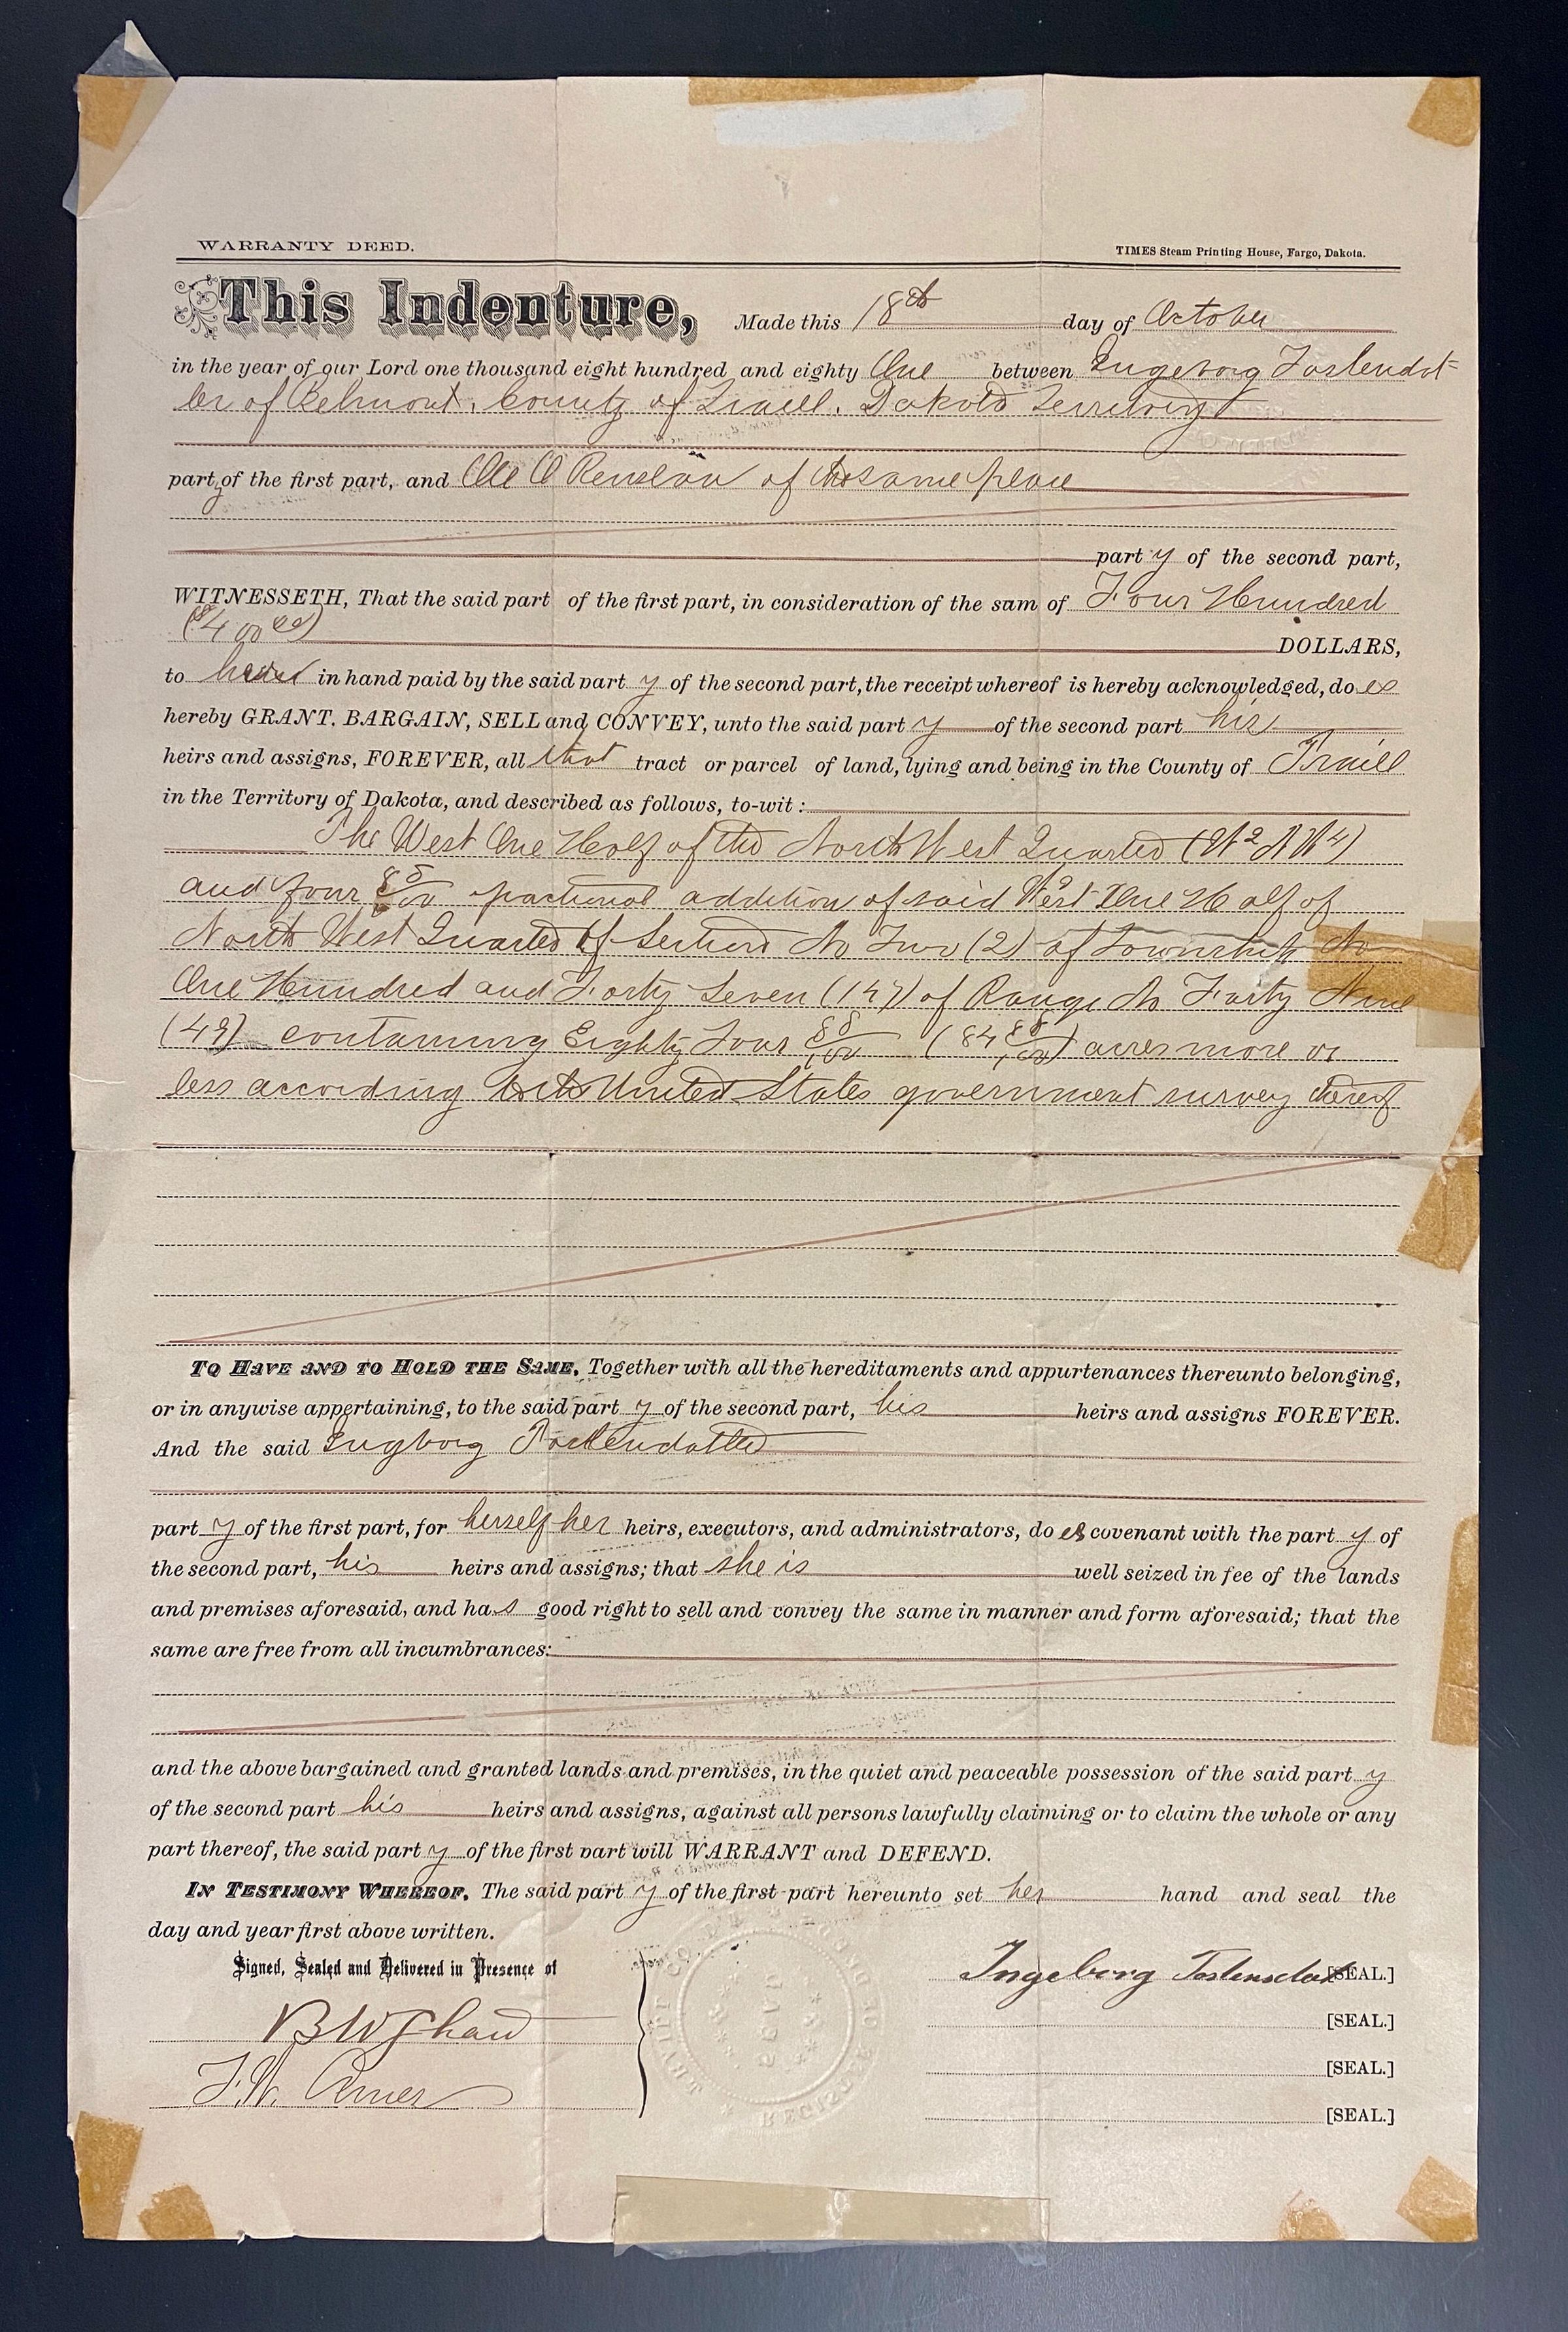 WARRANTY DEED. TIMES Steam Printing House, Fargo, Dakota.
This Indenture, Made this 18th day of October
in the year of our Lord one thousand eight hundred and eighty One between Ingeborg Tostendot
ter of Belmont, County of Traill, Dakota Territory
party of the first part, and Ole O of the same place
party of the second part,
WITNESSETH, That the said part of the first part, in consideration of the sum of Four Hundred
($400 00) DOLLARS,
to in hand paid by the said party of the second part, the receipt whereof is hereby acknowledged, does
hereby GRANT, BARGAIN, SELL and CONVEY, unto the said party of the second part his
heirs and assigns, FOREVER, all that tract or parcel of land, lying and being in the County of Traill
in the Territory of Dakota, and described as follows, to-wit:
The West One Half of the North West Quarter (W2 NW4)
and four 88/100 fractional addition of said West One Half of
North West Quarter of Section No Two (2) of Township No
One Hundred and Forty Seven (147) of Range No Forty Nine
(49) containing Eighty Four 88/100 (84 88/100) acres more or
less according to the United States government survey thereof
TO HAVE AND TO HOLD THE SAME, Together with all the hereditaments and appurtenances thereunto belonging,
or in anywise appertaining, to the said party of the second part, his heirs and assigns FOREVER.
And the said Ingborg Tostendotter
party of the first part, for herself her heirs, executors, and administrators, does covenant with the party of
the second part, his heirs and assigns; that she is well seized in fee of the lands
and premises aforesaid, and has good right to sell and convey the same in manner and form aforesaid; that the
same are free from all incumbrances:
and the above bargained and granted lands and premises, in the quiet and peaceable possession of the said party
of the second part his heirs and assigns, against all persons lawfully claiming or to claim the whole or any
part thereof, the said party of the first part will WARRANT and DEFEND.
IN TESTIMONY WHEREOF, The said party of the first part hereunto set her hand and seal the
day and year first above written.
Signed, Sealed and Delivered in Presence of
Ingeborg Tostensdot [SEAL.]
B W Shaw [SEAL.]
[SEAL.]
F. W. Ames [SEAL.]